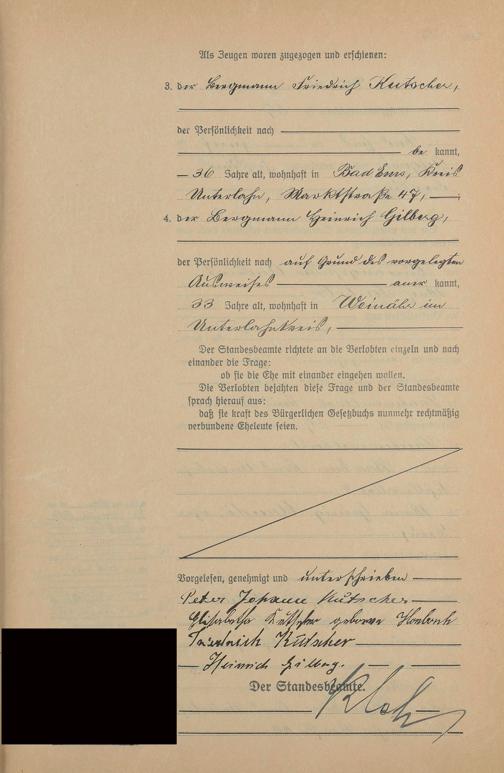 Als Zeugen waren zugezogen und erschienen:
3. der Bergmann Friedrich Kutscher,
der Persönlichkeit nach
be kannt,
36 Jahre alt, wohnhaft in Bad Ems, Kreis
Unterlahn, Marktstraße 47,
4. der Bergmann Heinrich Gilberg,
der Persönlichkeit nach auf Grund des vorgelegten
Ausweises aner kannt,
33 Jahre alt, wohnhaft in Weinähr im
Unterlahnkreis,
Der Standesbeamte richtete an die Verlobten einzeln und nach
einander die Frage:
ob sie die Ehe mit einander eingehen wollen.
Die Verlobten bejahten diese Frage und der Standesbeamte
sprach hierauf aus:
daß sie kraft des Bürgerlichen Gesetzbuchs nunmehr rechtmäßig
verbundene Eheleute seien.
Vorgelesen, genehmigt und unterschrieben
Peter Johann Kutscher
Elisabetha Kutscher geborene
Friedrich Kutscher
Heinrich Gilberg.
Der Standesbeamte.